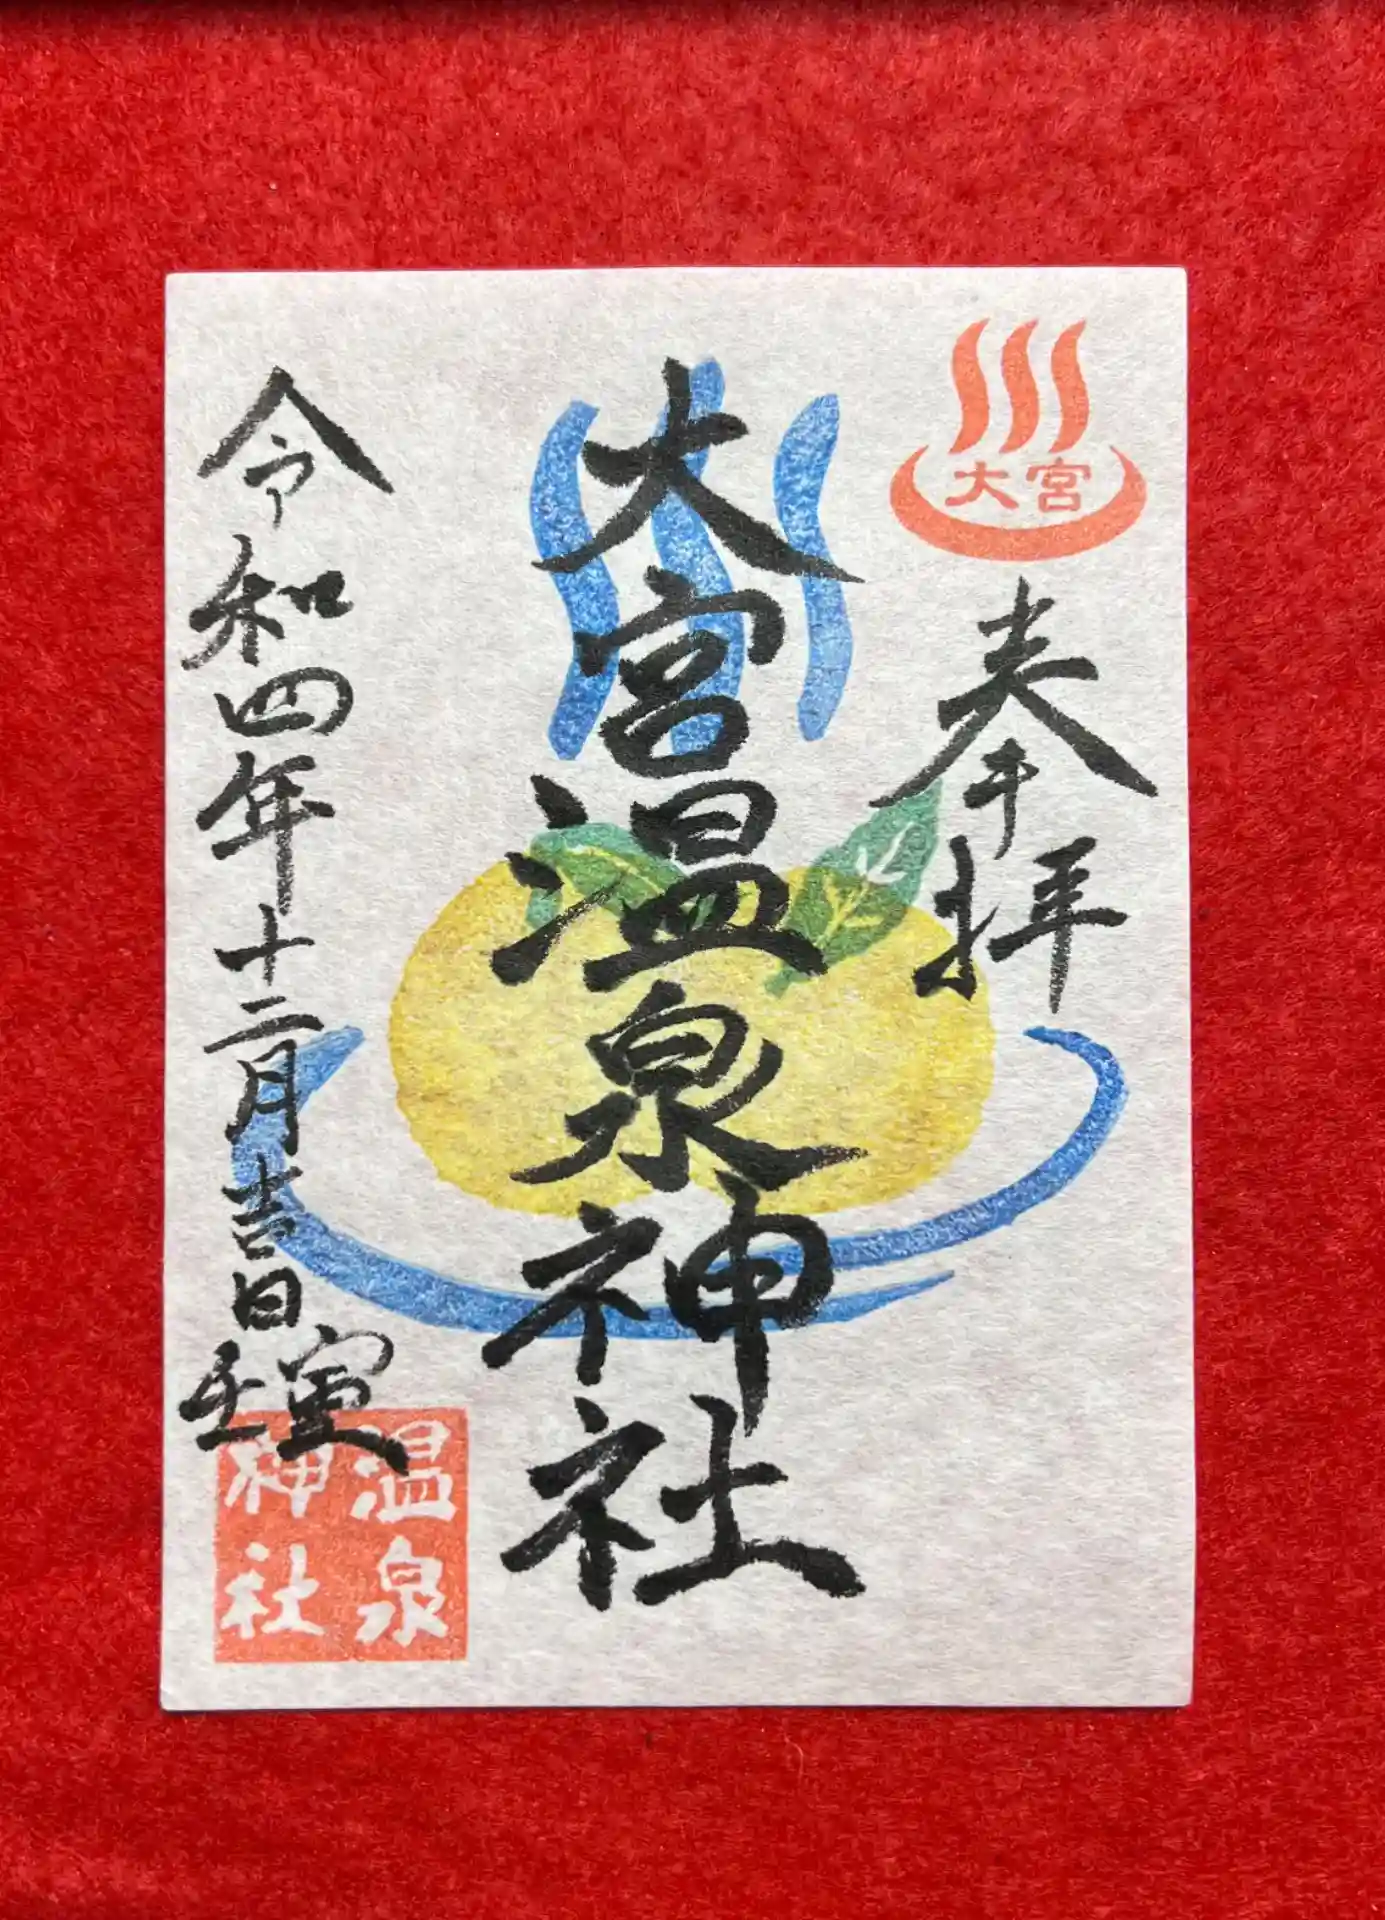 大宮
奉拝
大宮温泉神社
令和四年十二月吉日
壬寅
温泉
神社